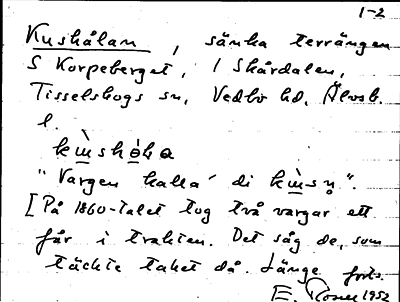 1-2
Kushålan, sänka terrängen
S Korpeberget, i Skårdalen,
Tisselskogs sn, Vedbo hd, Älvsb.
l.
"Vargen kalla di
[På 1860-talet tog två vargar ett
får i trakten. Det såg de, som
täckte taket då. Länge forts.
E. Rosell 1952